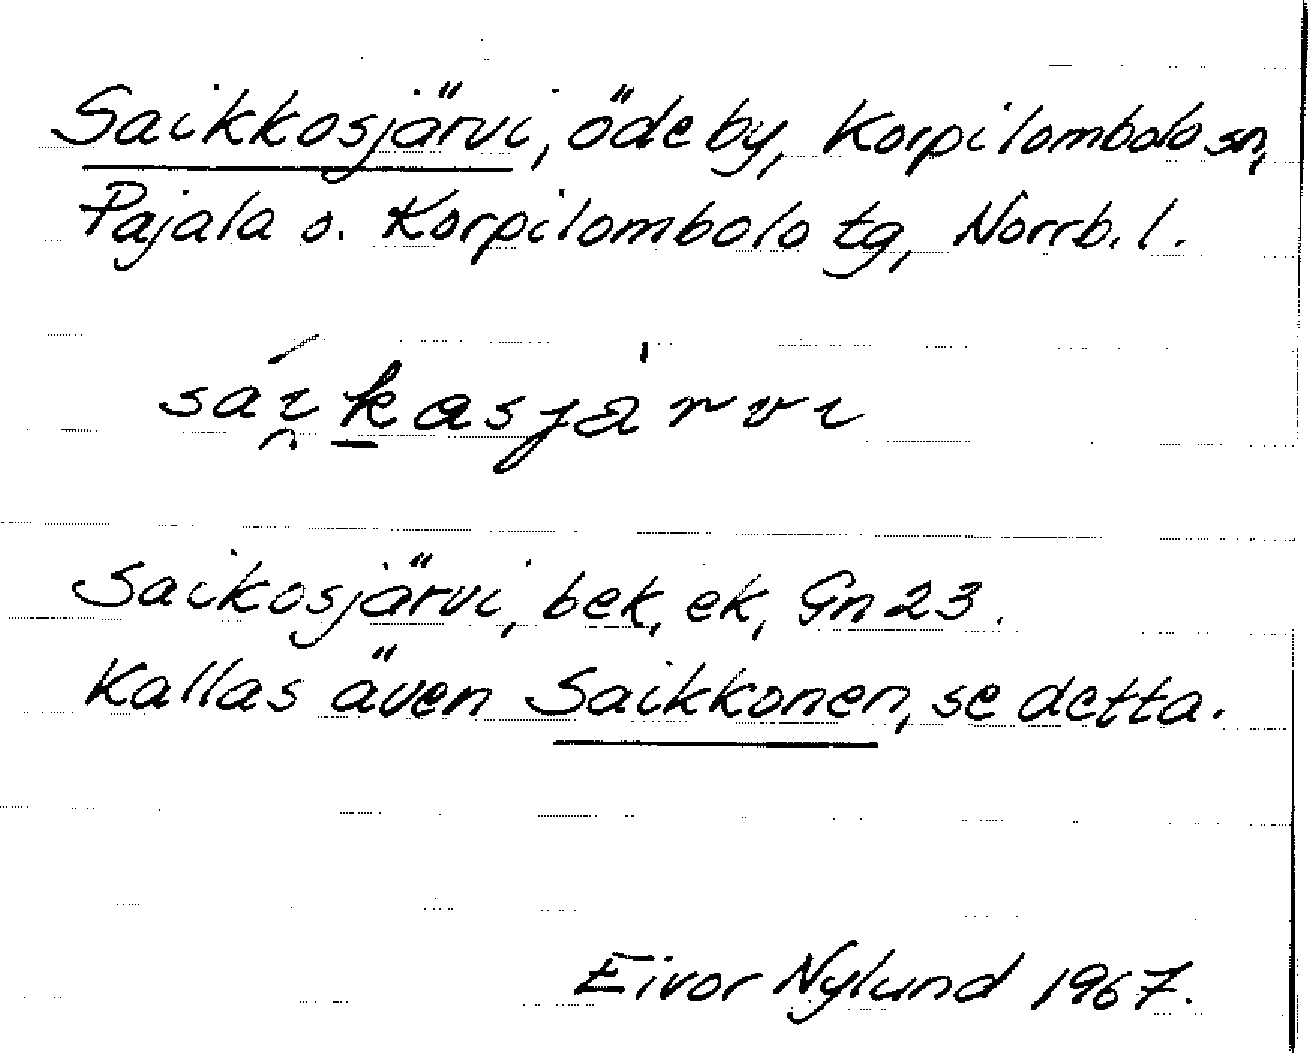 Saikkosjärvi, ödeby, Korpilombolo sn,
Pajala o. Korpilombolo tg, Norrb. l.
Saikosjärvi, bek, ek, Gn 23.
Kallas även Saikkonen, se detta.
Eivor Nylund 1967.